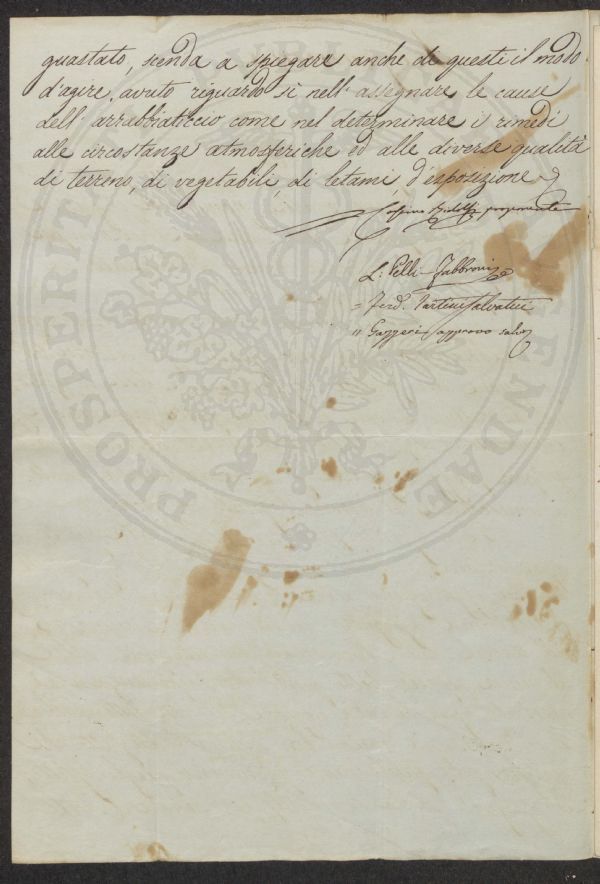 guastato, scenda a spiegare anche di questi il modo
d'agire, avuto riguardo sì nell'assegnare le cause
dell'arrabbiaticcio come nel determinare i rimedi
alle circostanze atmosferiche ed alle diverse qualità
di terreno, di vegetabili, di letami, d'esposizione
Cosimo Ridolfi proponente
L. Pelli-Fabbroni
= Ferd. Tartini Salvatici
" Gazzeri approvo
PROSPERITATI AUGENDAE